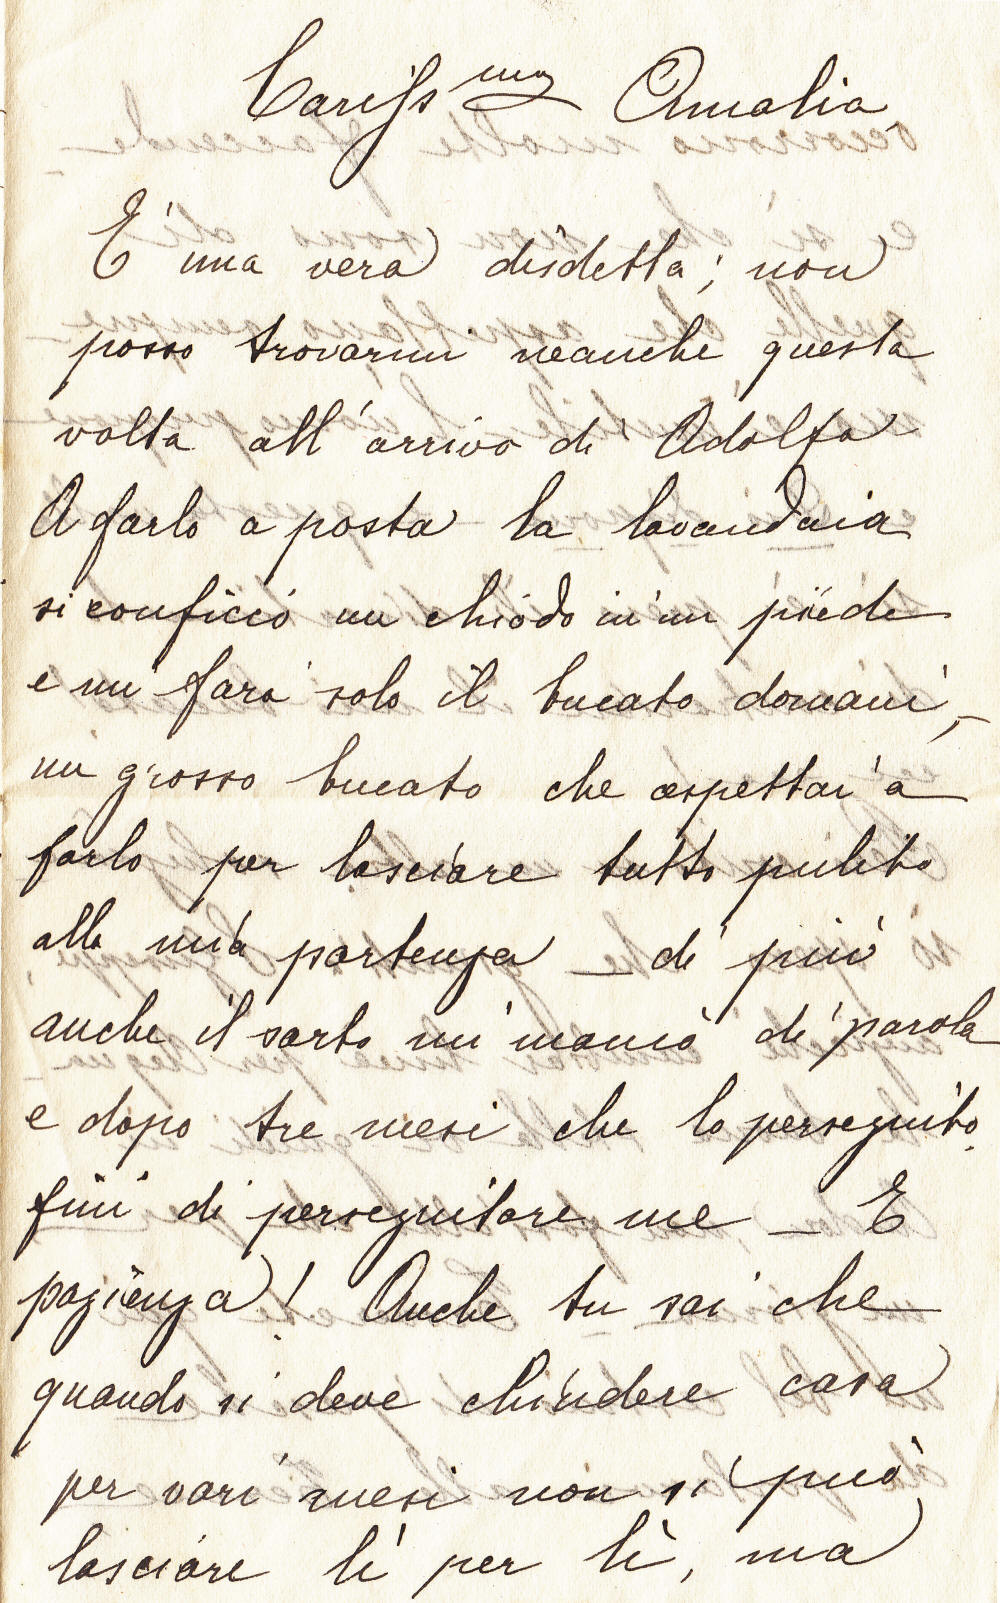 Cariss^ma Amalia,
E' una vera disdetta; non
posso trovarmi neanche questa
volta all'arrivo di Adolfo
A farlo a posta la lavandaia
si conficcò un chiodo in un piede
e mi farà solo il bucato domani,
un grosso bucato che aspettai a
farlo per lasciare tutto pulito
alla mia partenza _ di più
anche il sarto mi mancò di parola
e dopo tre mesi che lo perseguito
finì di perseguitare me _ E
pazienza! Anche tu sai che
quando si deve chiudere casa
per vari mesi non si può
lasciare lì per lì, ma